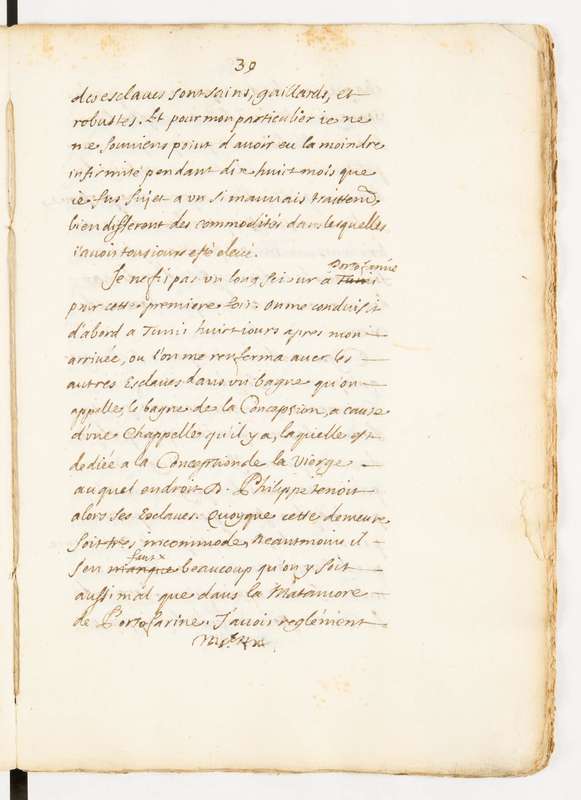 39
des esclaves sont sains, gaillards, et
robustes. Et pour mon particulier ie ne
me souviens point d'avoir eu la moindre
infirmité pendant dix huit mois que
ie fus sujet a un si mauvais traittem̃t
bien different des commodités dans lesquelles
i'avois tousiours esté elevé.
Portofarine
Je ne fis pas un long seiour a Tunis
pour cette premiere fois. On me conduisit
d'abord a Tunis huit iours apres mon
arrivée, ou l'on me renferma avec les
autres Esclaves dans un bagne qu'on
appelle le bagne de la Conception, a cause
d'une Chappelle qu'il y a, laquelle est
dediée a la Conception de la Vierge
auquel endroit D. Philippe tenoit
alors ses Esclaves. Quoyque cette demeure
soit tres incommode, Neantmoins il
faut
s'en manque beaucoup qu'on y soit
aussi mal que dans la Matamore
de Portofarine. J'avois reglément